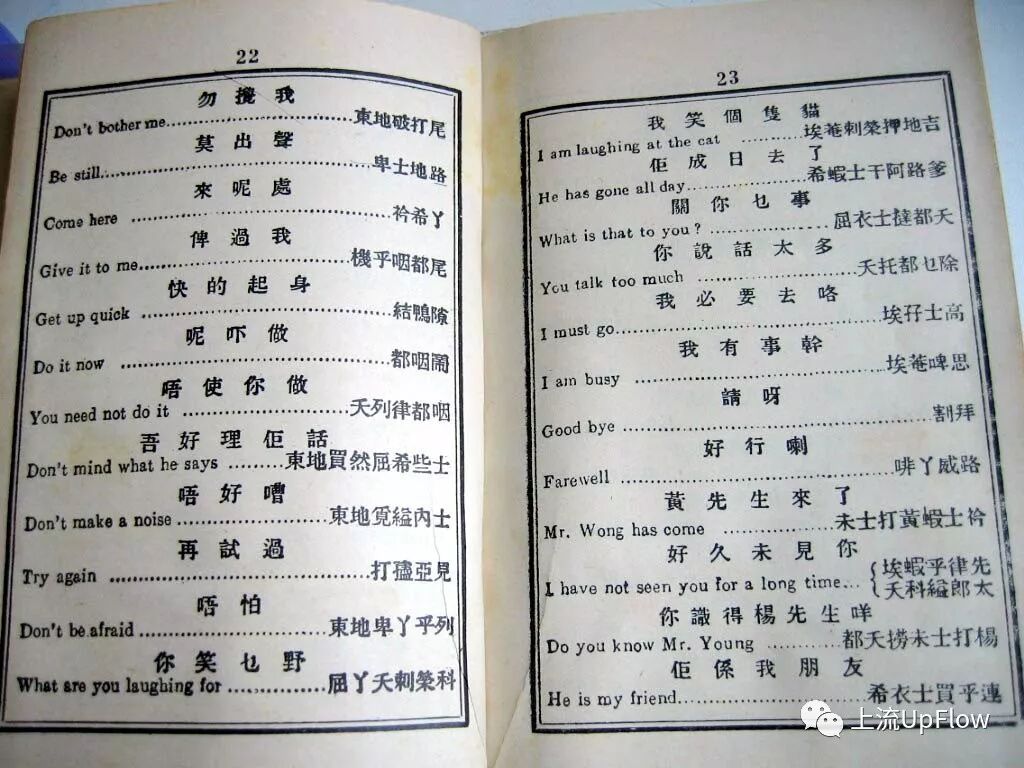 22
勿攪我
Don't bother me..........東地破打尾
莫出聲
Be still..........卑士地路
來呢處
Come here ..........衿希丫
俾過我
Give it to me..........機乎咽都尾
快的起身
Get up quick ..........結鴨隙
呢吓做
Do it now ..........都咽鬧
唔使你做
You need not do it ..........天列律都咽
吾好理佢話
Don't mind what he says ..........東地買然屈希些士
唔好嘈
Don't make a noise..........東地覓縊內士
再試過
Try again ..........打孻亞見
唔怕
Don't be afraid..........東地卑丫乎列
你笑乜野
What are you laughing for ..........屈丫天剌榮科
23
我笑個隻貓
I am laughing at the cat ..........埃菴剌榮押地吉
佢成日去了
He has gone all day..........希蝦士干阿路爹
關你乜事
What is that to you? ..........屈衣士撻都天
你說話太多
You talk too much ..........天托都乜除
我必要去咯
I must go..........埃孖士高
我有事幹
I am busy ..........埃菴啤思
請呀
Good bye ..........割拜
好行喇
Farewell ..........啡丫威路
黃先生來了
Mr. Wong has come ..........未士打黃蝦士衿
好久未見你
I have not seen you for a long time... 埃蝦乎律先
天科縊郎太
你識得楊先生咩
Do you know Mr. Young ..........都天撈未士打楊
佢係我朋友
He is my friend..........希衣士買乎連
上流UpFlow